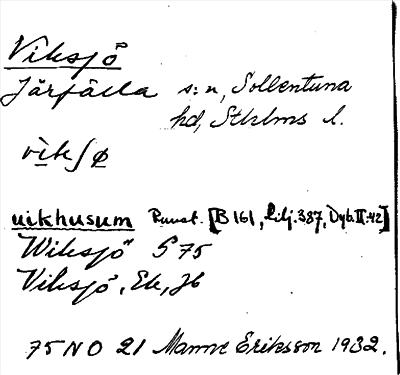 Viksjö
Järfälla s:n, Sollentuna
hd, Sthlms l.
vik ʃø
uikhusum Runst. [B 161, Lilj. 387, Dyb. II:42]
Wiksjö S 75
Viksjö, Ek, Jb
75 N O 21 Manne Eriksson 1932.